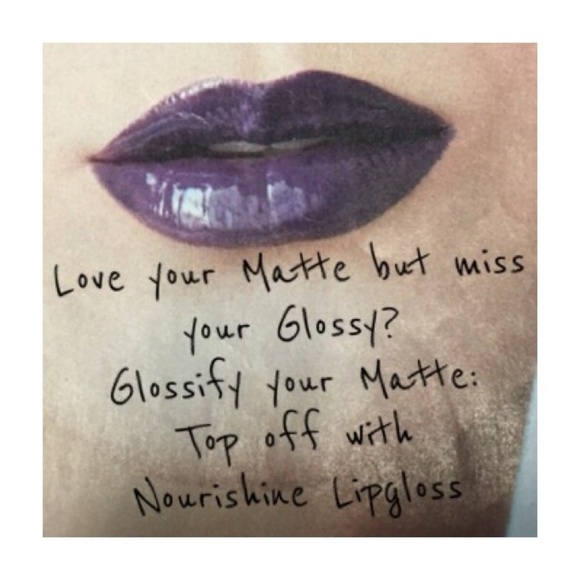 Love your Matte but miss
your Glossy?
Glossify your Matte:
Top off with
Nourishine Lipgloss